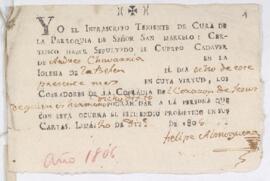 YO EL INFRASCRITO TENIENTE DE CURA DE
LA PARROQUIA DE SEÑOR SAN MARCELO: CER-
TIFICO HABER SEPULTADO EL CUERPO CADAVER
DE Andres Chavarria EN LA
IGLESIA DE EL DIA ocho de este
presente mes EN CUYA VIRTUD, LOS
COBRADORES DE LA COFRADIA DE el Corazon de Jesus
MANDARAN DAR A LA PERSONA QUE
CON ESTA OCURRA EL ESTIPENDIO PROMETIDO EN SUS
CARTAS. LIMA DE 1806.
Felipe
Año 1806